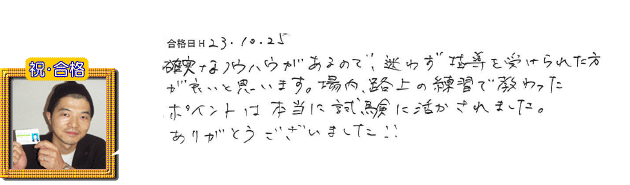 合格日H23.10.25
祝・合格
確実なノウハウがあるので、迷わず指導を受けられた方
が良いと思います。場内、路上の練習で教わった
ポイントは本当に試験に活かされました。
ありがとうございました!!